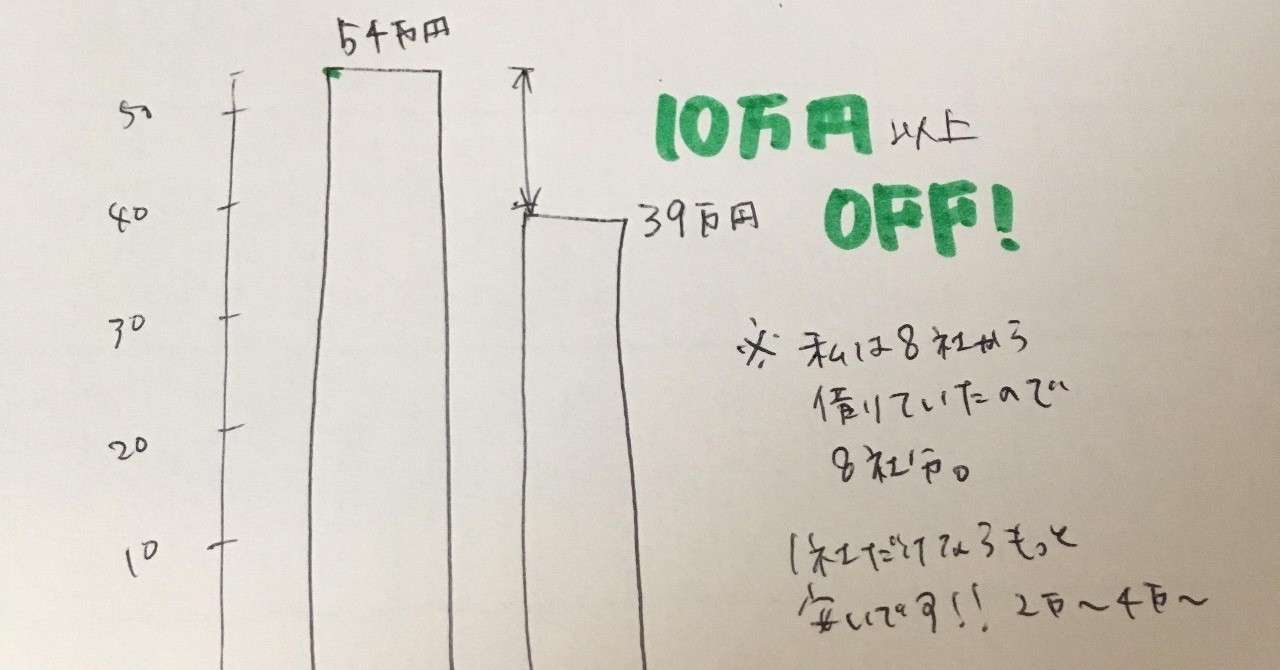 54万円
50
10万円以上
40
39万円
OFF!
30
※ 私は8社から
借りていたので
20
8社分。
10
1社だけならもっと
安いです!! 2万〜4万〜